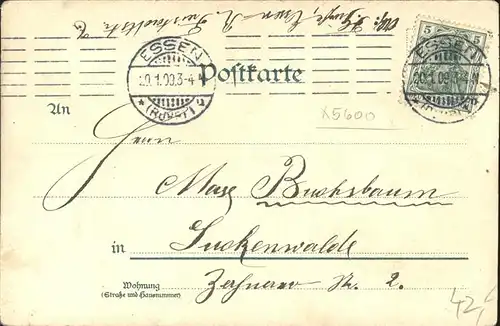 5 5
ESSEN
20.1.09.3-4
*(RUHR)
ESSEN
20.1.09.3-4
*(RUHR)
Postkarte
X5600
An
Herrn
Max Buchsbaum
in Luckenwalde
Wohnung
(Straße und Hausnummer)
Zerhnerer Str. 2.
42,